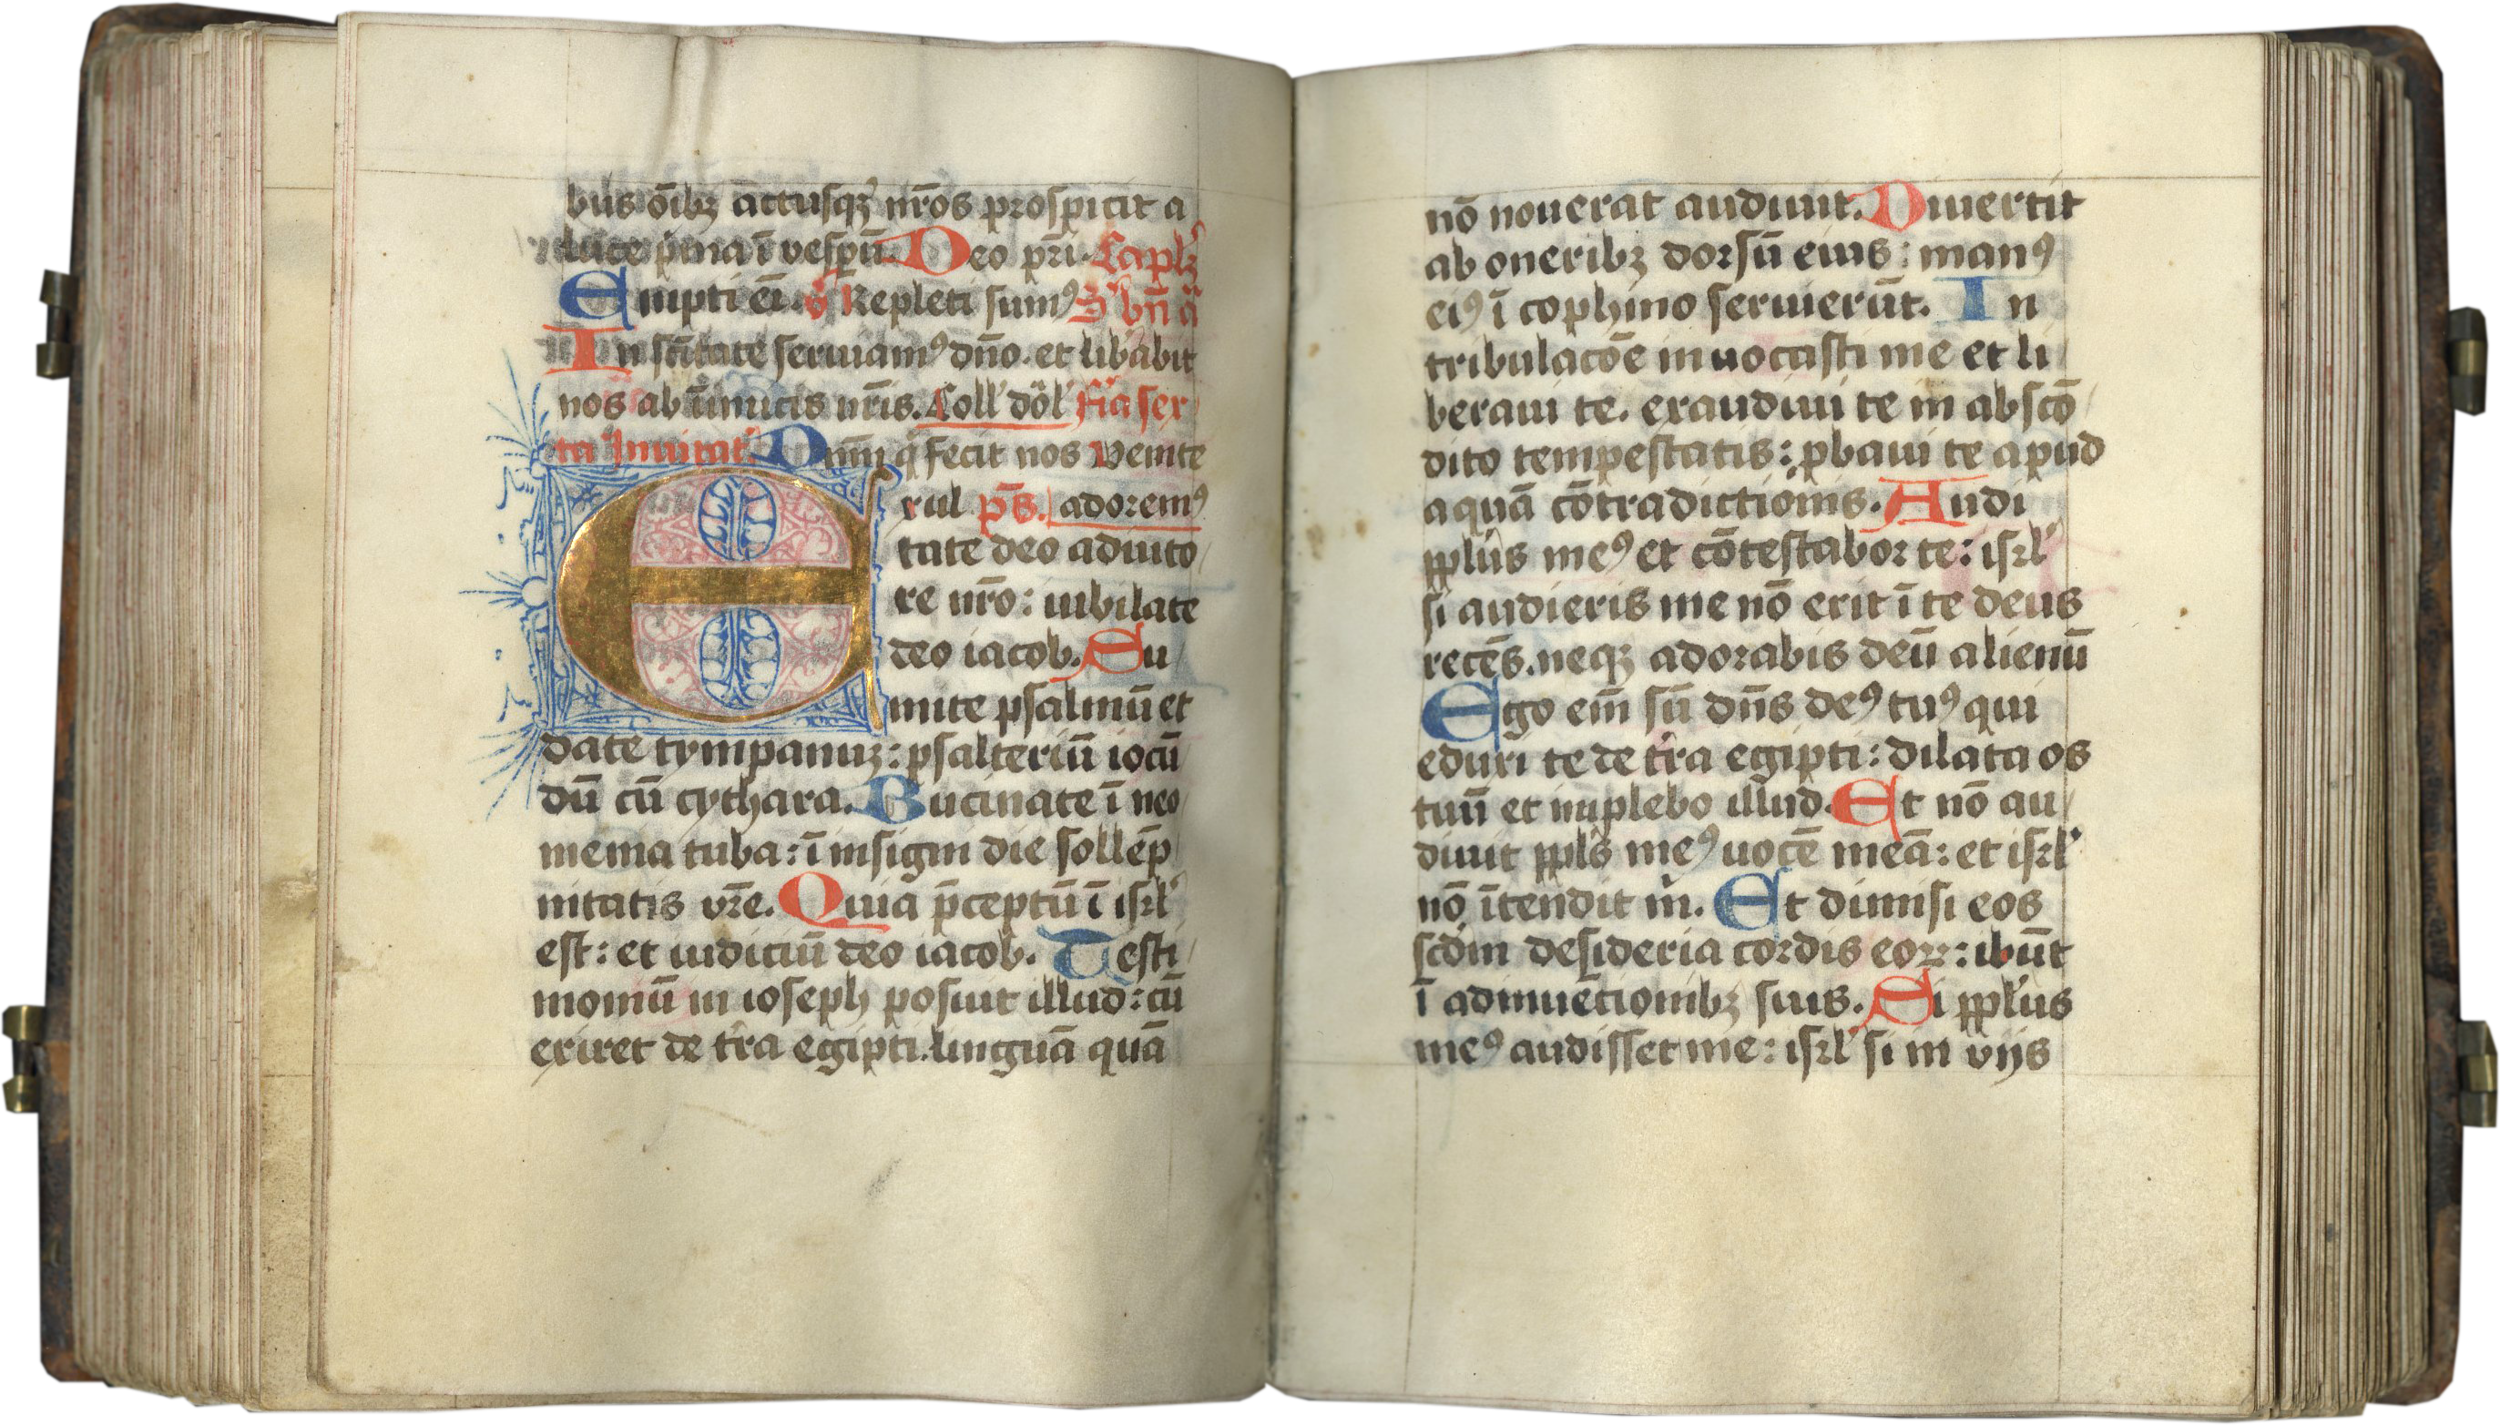 bus oībꝫ actusqꝫ nr̄os prospicit a
luce p̄ma ī vesꝑū. Deo pr̄i. Caplꝫ
Empti eī. Repleti sumꝰ bn̄
In sc̄itate seruiamꝰ dn̄o. et libabit
nos ab īimicis nr̄is. Coll dol fīa sex
ta Inuitat Dnm̄ q fecit nos Venite
Exul ps̄. adoremꝰ
tate deo adiuto
re nr̄o: iubilate
deo iacob. Su
mite psalmū et
date tympanuꝫ: psalteriū iocū
dū cū cythara. Bucinate ī neo
menia tuba: ī insigni die sollēp
nitatis vr̄e. Quia p̄ceptū ī isrl
est: et iudiciū deo iacob. Testi
moniū in ioseph posuit illud: cū
exiret de tr̄a egipti. linguā quā
nō nouerat audiuit. Diuertit
ab oneribꝫ dorsū eius: manꝰ
eiꝰ ī cophino seruierūt. In
tribulacōe inuocasti me et li
beraui te. exaudiui te in abscō
dito tempestatis: ꝓbaui te apud
aquā cōtradictiōnis. Audi
pplūs meꝰ et cōtestabor te: isrl
si audieris me nō erit ī te deus
recēs. neqꝫ adorabis deū alienū
Ego em̄ sū dn̄s deꝰ tuꝰ qui
eduxi te de tr̄a egipti: dilata os
tuū et implebo illud. Et nō au
diuit ppls meꝰ uocē meā: et isrl
nō ītendit m. Et dimisi eos
scdm desideria cordis eoꝝ: ibūt
ī adinuētionibꝫ suis. Si pplus
meꝰ audisset me: isrl si in viis